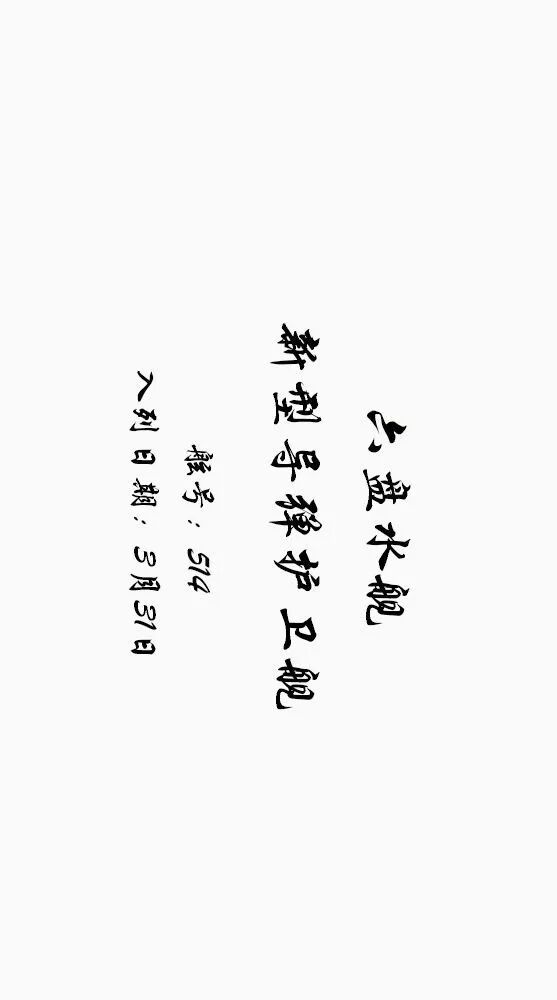 六盘水舰
新型导弹护卫舰
舷号：514
入列日期：3月31日